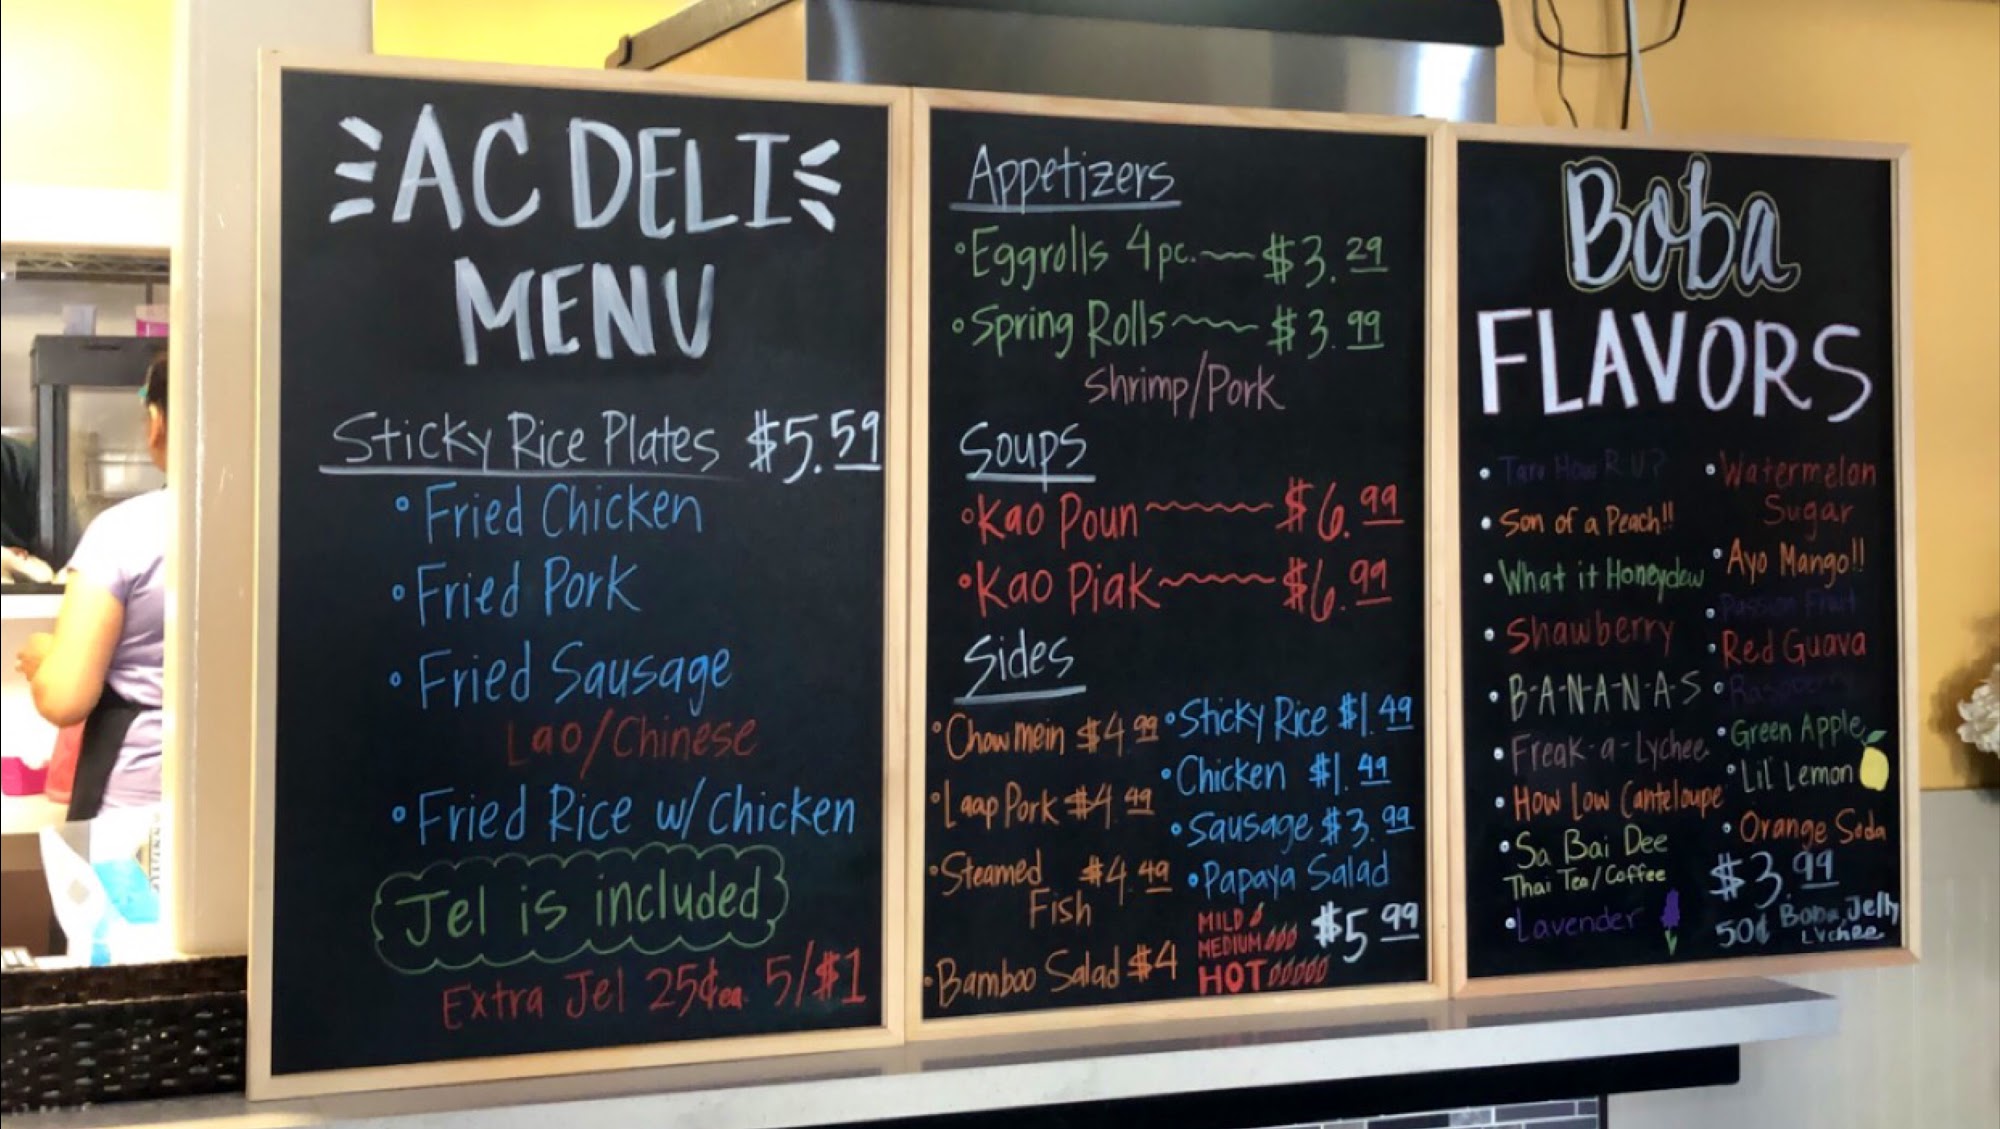 AC DELI
MENU
Sticky Rice Plates $5.59
• Fried Chicken
• Fried Pork
• Fried Sausage
Lao/Chinese
• Fried Rice w/ Chicken
Jel is included
Extra Jel 25¢ea 5/$1
Appetizers
• Eggrolls 4pc. $3.29
• Spring Rolls $3.99
Shrimp/Pork
Soups
• Kao Poun $6.99
• Kao Piak $6.99
Sides
• Chow mein $4.99
• Laap Pork $4.49
• Steamed $4.49
Fish
• Bamboo Salad $4
• Sticky Rice $1.49
• Chicken $1.49
• Sausage $3.99
• Papaya Salad
MILD
MEDIUM
HOT
$5.99
Boba
FLAVORS
• Taro How R U?
• Son of a Peach!!
• What it Honeydew
• Shawberry
• B-A-N-A-N-A-S
• Freak-a-Lychee
• How Low Canteloupe
• Sa Bai Dee
Thai Tea/Coffee
• Lavender
• Watermelon
Sugar
• Ayo Mango!!
• Passion Fruit
• Red Guava
• Raspberry
• Green Apple
• Lil' Lemon
• Orange Soda
$3.99
50¢ Boba, Jelly
Lychee